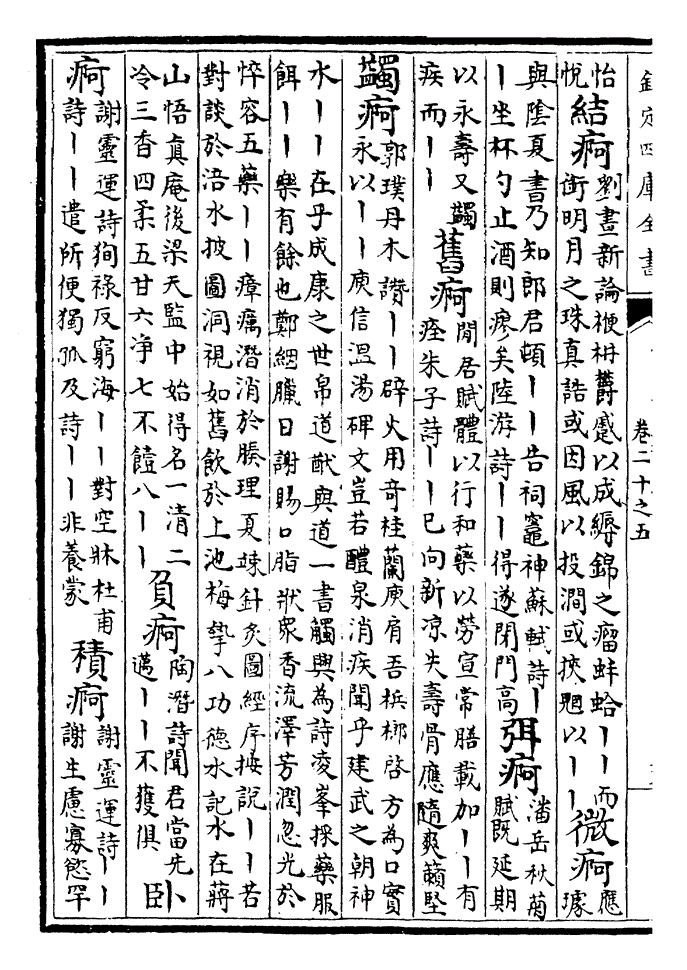 欽定四庫全書
卷二十之五
怡
悅
結痾
劉晝新論梗枏鬱蹙以成縟錦之瘤蚌蛤丨丨而
銜明月之珠真誥或因風以投澗或挾魍以丨丨
微痾
應
璩
與陰夏書乃知郎君頓丨丨告祠竈神蘇軾詩丨
丨坐杯勺止酒則瘳矣陸游詩丨丨得遂閉門高
弭痾
潘岳秋菊
賦既延期
以永壽又蠲
疾而丨丨
舊痾
閒居賦體以行和藥以勞宣常膳載加丨丨有
痊朱子詩丨丨已向新凉失壽骨應隨爽籟堅
蠲痾
郭璞丹木讚丨丨辟火用奇桂蘭庾肩吾梹榔啓方為口實
永以丨丨庾信溫湯碑文豈若醴泉消疾聞乎建武之朝神
水丨丨在乎成康之世帛道猷與道一書觸興為詩凌峯採藥服
餌丨丨樂有餘也鄭絪臘日謝賜口脂狀衆香流澤芳潤忽光於
悴容五藥丨丨瘴癘潛消於腠理夏竦針灸圖經序按說丨丨若
對談於涪水披圖洞視如舊飲於上池梅摯八功德水記水在蔣
山悟真庵後梁天監中始得名一清二
冷三香四柔五甘六净七不饐八丨丨
負痾
陶潛詩聞君當先
邁丨丨不獲俱
卧
痾
謝靈運詩狥祿反窮海丨丨對空牀杜甫
詩丨丨遣所便獨孤及詩丨丨非養蒙
積痾
謝靈運詩丨丨
謝生慮寡慾罕